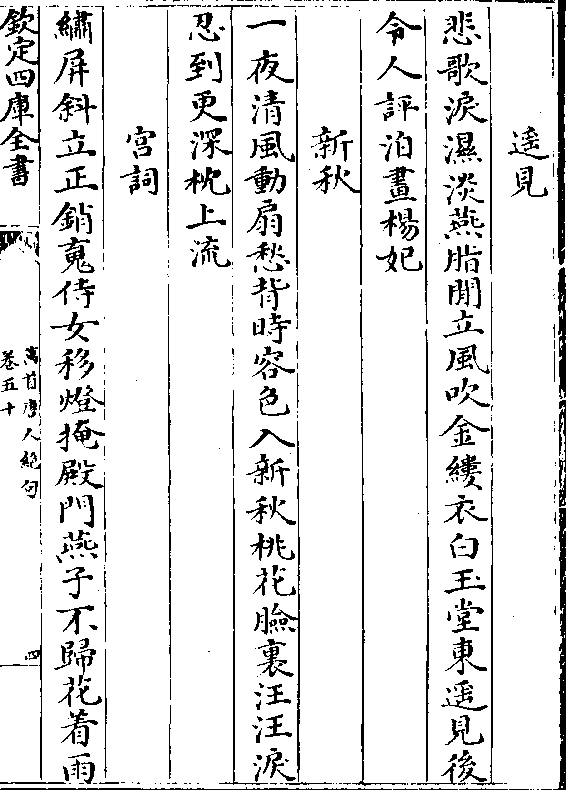 遥見
悲歌淚濕淡燕脂閒立風吹金縷衣白玉堂東遥見後
令人評泊畫楊妃
新秋
一夜清風動扇愁背時容色入新秋桃花臉裏汪汪淚
忍到更深枕上流
宫詞
繡屏斜立正銷䰟侍女移燈掩殿門燕子不歸花着雨
欽定四庫全書
萬首唐人絶句
卷五十
四